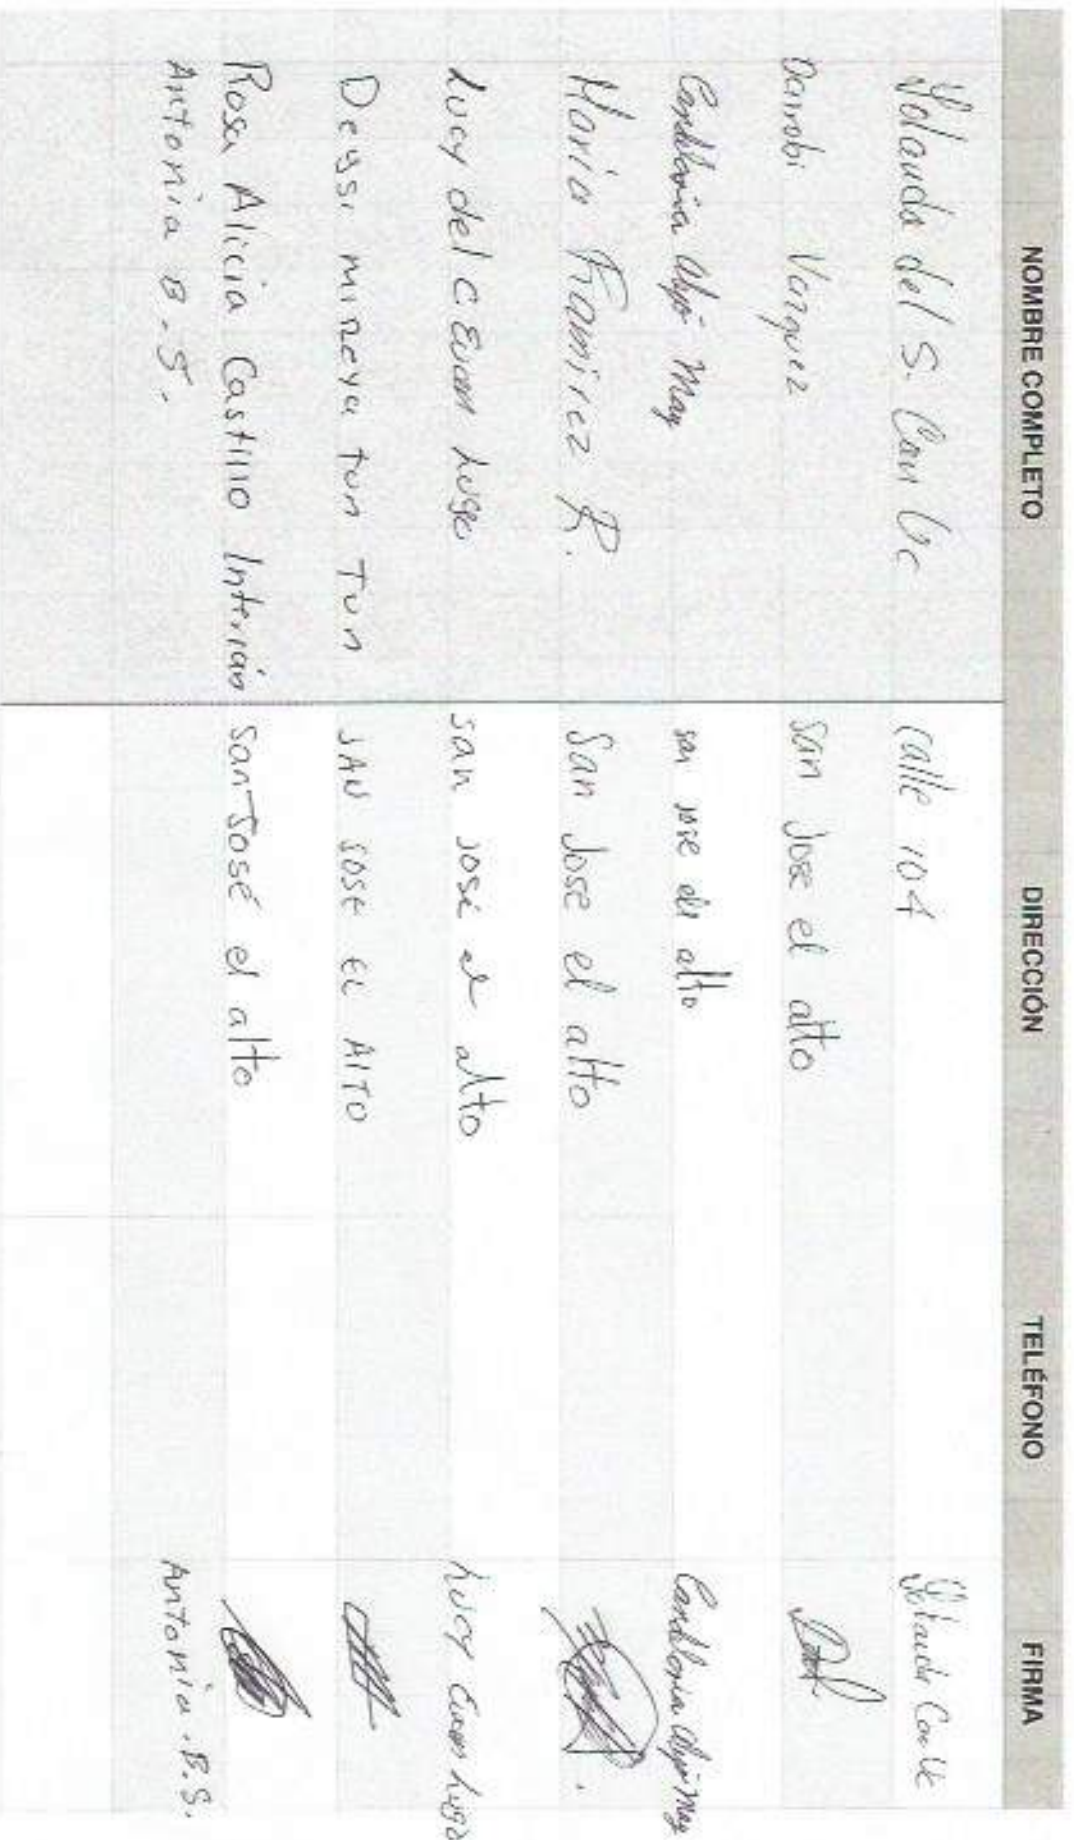 NOMBRE COMPLETO DIRECCIÓN TELÉFONO FIRMA
Yolanda del S. Can Uc calle 104 Yolanda Can Uc
Darrobi Vazquez San Jose el alto
Candelaria May san jose de alto Candelaria May
Maria Ramirez R. San Jose el alto
Lucy del C. Euan Lugo san josé el alto Lucy Euan Lugo
Deysi mireya tun Tun SAN JOSE EL ALTO
Rosa Alicia Castillo Interián San José el alto
Antonia B.S. Antonia.B.S.